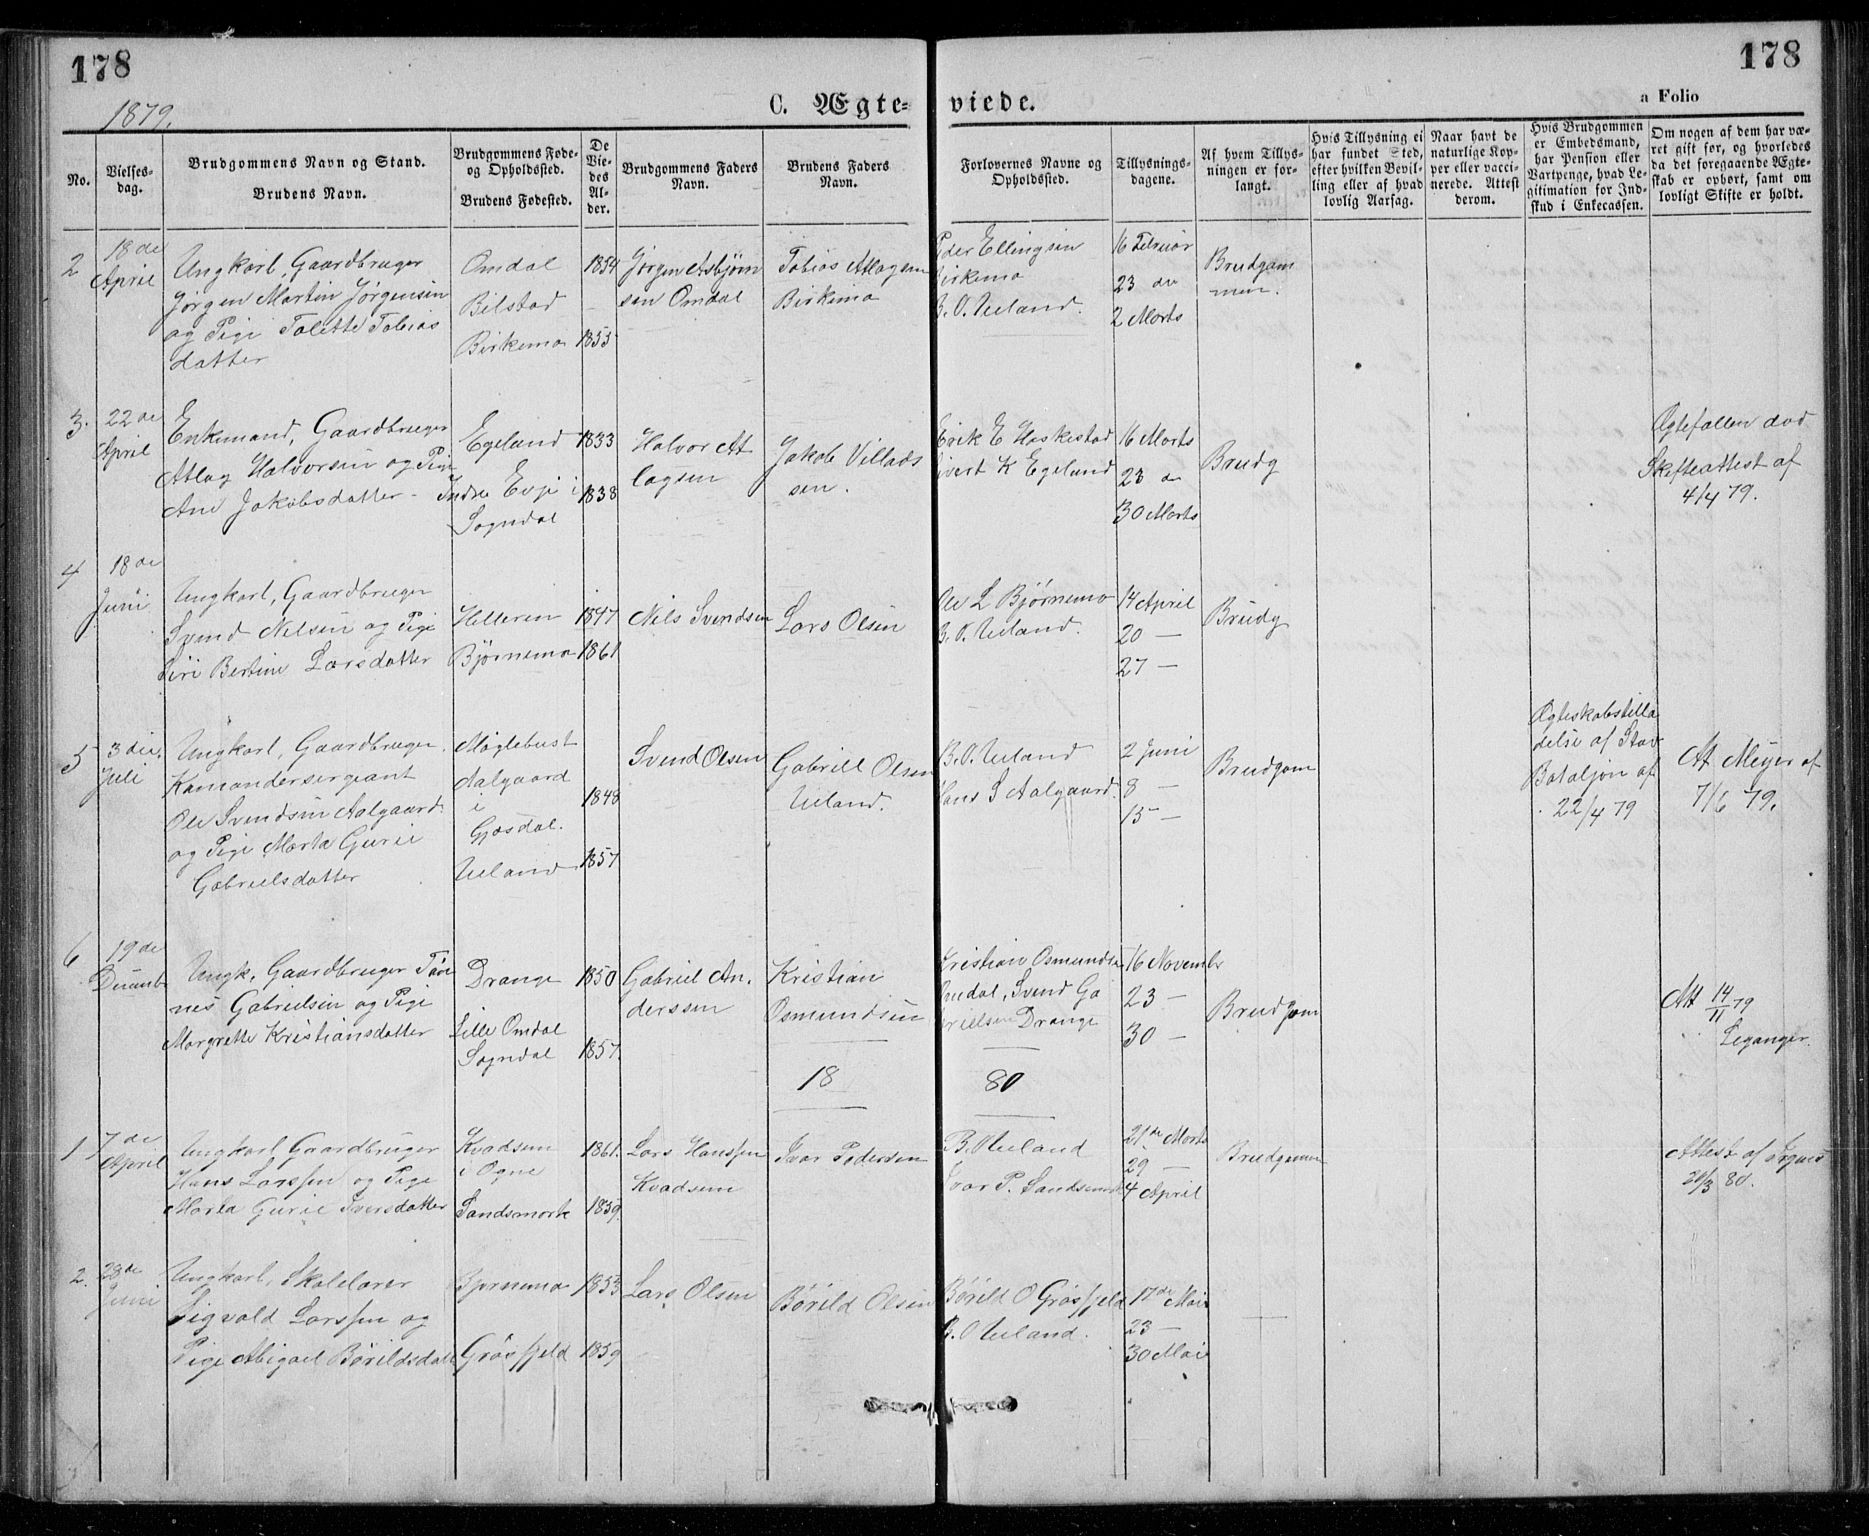 178
178
1879.
C. Ægte-
viede.
a Folio
No.
Vielses-
dag.
Brudgommens Navn og Stand.
Brudens Navn.
Brudgommens Føde-
og Opholdssted.
Brudens Fødested.
De
Vie-
des
Al-
der.
Brudgommens Faders
Navn.
Brudens Faders
Navn.
Forlovernes Navne og
Opholdssted.
Tillysnings-
dagene.
Af hvem Tillys-
ningen er for-
langt.
Hvis Tillysning ei
har fundet Sted,
efter hvilken Bevil-
ling eller af hvad
lovlig Aarsag.
Naar havt de
naturlige Kop-
per eller vacci-
nerede. Attest
derom.
Hvis Brudgommen
er Embedsmand,
har Pension eller
Vartpenge, hvad Le-
gitimation for Ind-
skud i Enkecassen.
Om nogen af dem har væ-
ret gift før, og hvorledes
da det foregaaende Ægte-
skab er ophørt, samt om
lovligt Skifte er holdt.
2
18de
April
Ungkarl, Gaardbruger
Jørgen Martin Jørgensen
og Pige Talette Tobias
datter
Omdal
Bilstad
Birkemo
1854
1855
Jørgen Asbjørn
sen Omdal
Tobias Atlagsen
Birkemo
Peder Ellingsen
Birkemo
B. O. Ueland.
16 Februar
23 do
2 Marts
Brudgom
men.
3.
22de
April
Enkemand, Gaardbruger
Atlag Halvorsen og Pige
Ane Jakobsdatter
Egeland
Indre Evje i
Sogndal
1833
1838
Halvor At
lagsen
Jakob Villads
sen.
Eirik E Haskestad
Sivert K Egeland
16 Marts
23 do
30 Marts
Brudg
Ægtefællen død
Skifteattest af
4/4 79.
4
18de
Juni
Ungkarl, Gaardbruger
Svend Nilsen og Pige
Siri Bertine Larsdatter
Helleren
Bjørnemo
1847
1861
Nils Svendsen
Lars Olsen
Ole L Bjørnemo
B. O. Ueland.
14 April
20 —
27 —
Brudg
5
3die
Juli
Ungkarl, Gaardbruger
Kamandersergeant
Ole Svendsen Aalgaard
og Pige Marta Gurie
Gabrielsdatter
Møglebust
Aalgaard
i
Gjesdal.
Ueland
1848
1857
Svend Olsen
Gabriel Olsen
Ueland.
B. O. Ueland
Hans S Aalgaard.
2 Juni
8 —
15 —
Brudgom
Ægteskabstilla
delse af Stav
Bataljon af
22/4 79
At Meyer af
7/6 79.
6
19de
Decemb
Ungk, Gaardbruger Tøn
nes Gabrielsen og Pige
Margrette Kristiansdatter
Drange
Lille Omdal
Sogndal
1850
1857.
Gabriel An.
derssen
Kristian
Osmundsen
Kristian Osmundsen
Omdal, Svend Ga
brielsen Drange
16 Novembr
23 —
30 —
Brudgom
Att 14/11 79
Leganger.
18
80
1
7de
April
Ungkarl Gaardbruger
Hans Larssen og Pige
Marta Gurie Iversdatter
Kvadsem
i Ogne
Sandsmork
1861.
1859.
Lars Hanssen
Kvadsem
Ivar Pedersen
B. O Ueland
Ivar P. Sandsmork
21de Marts
29 —
4 April
Brudgommen
Attest af
20/3 80.
2.
28de
Juni
Ungkarl, Skolelærer
Sigvald Larssen og
Pige Abigael Børildsdatt
Bjørnemo
Gråsfjeld
1853
1859
Lars Olsen
Børild Olsen
Børild O Gråsfjeld
B. O Ueland.
17de Mai
23 —
30 Mai